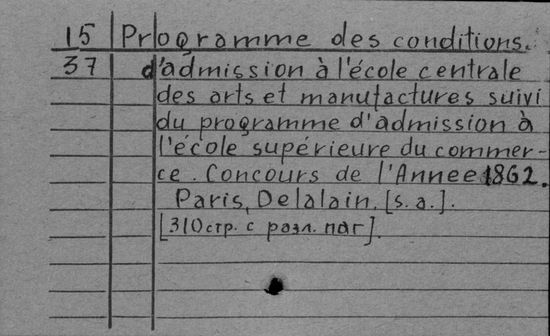 15 Programme des conditions.
37 d'admission à l'école centrale
des arts et manufactures suivi
du programme d'admission à
l'école supérieure du commer-
ce. Concours de l'Annee 1862.
Paris, Delalain. [s.a.].
[310стр. с разл. паг].